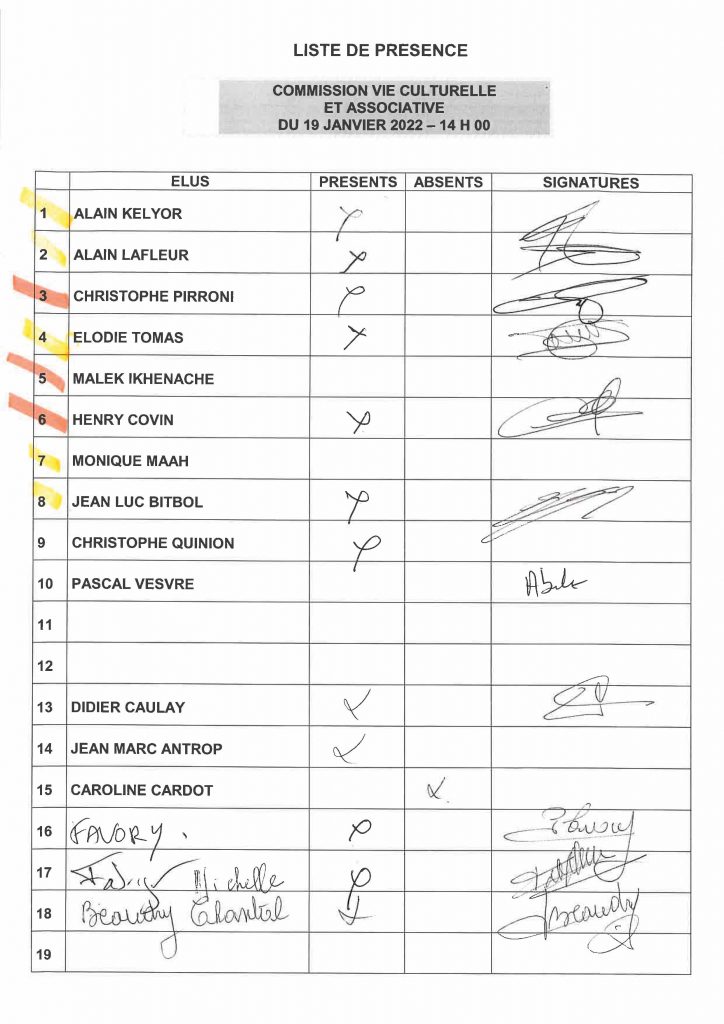 LISTE DE PRESENCE
COMMISSION VIE CULTURELLE
ET ASSOCIATIVE
DU 19 JANVIER 2022 – 14 H 00
ELUS PRESENTS ABSENTS SIGNATURES
1 ALAIN KELYOR
2 ALAIN LAFLEUR
3 CHRISTOPHE PIRRONI
4 ELODIE TOMAS
5 MALEK IKHENACHE
6 HENRY COVIN
7 MONIQUE MAAH
8 JEAN LUC BITBOL
9 CHRISTOPHE QUINION
10 PASCAL VESVRE
11
12
13 DIDIER CAULAY
14 JEAN MARC ANTROP
15 CAROLINE CARDOT
16 FAVORY.
17 Michelle
18 Beaudry Chantal Beaudry
19